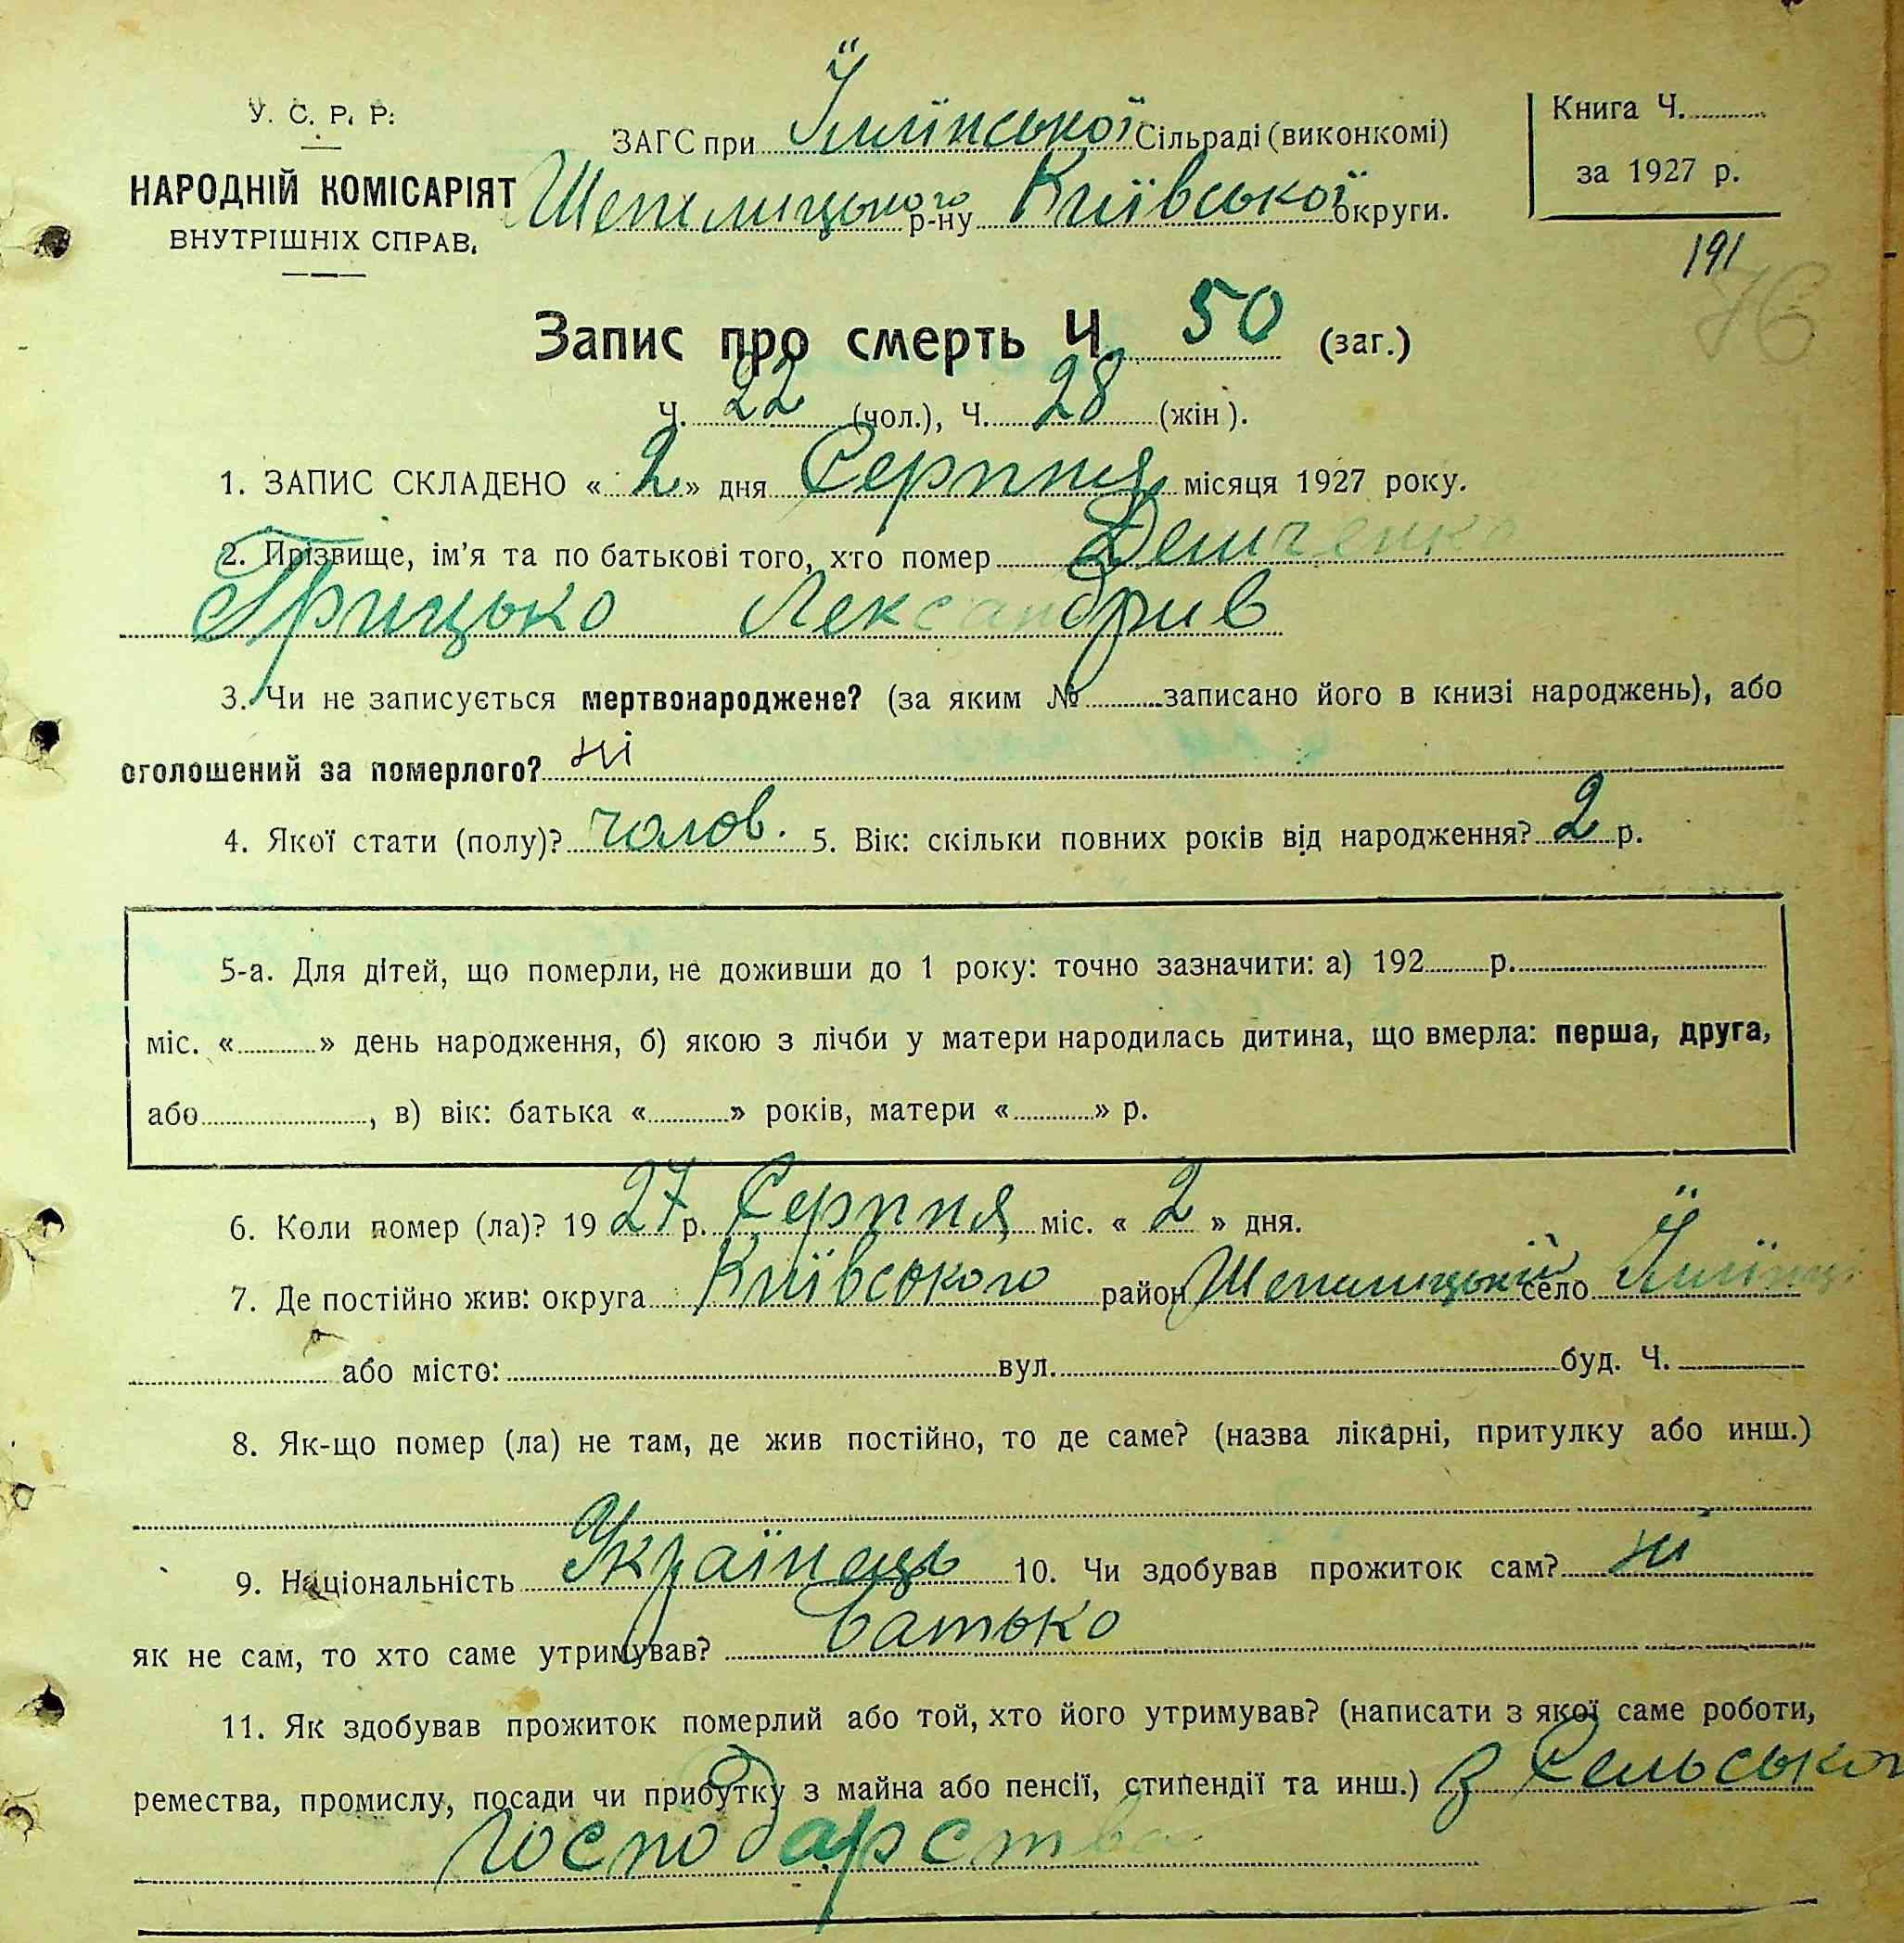 У. С. Р. Р.
ЗАГС при Їлліїнської Сільраді (виконкомі)
Книга Ч.
НАРОДНІЙ КОМІСАРІЯТ
Шепелицького р-ну Київської округи.
за 1927 р.
ВНУТРІШНІХ СПРАВ.
191
76
Запис про смерть Ч. 50 (заг.)
Ч. 22 (чол.), Ч. 28 (жін).
1. ЗАПИС СКЛАДЕНО « 2 » дня Серпня місяця 1927 року.
2. Прізвище, ім'я та по батькові того, хто помер Демченко
Грицько Лександрив
3. Чи не записується мертвонароджене? (за яким № записано його в книзі народжень), або
оголошений за померлого? ні
4. Якої стати (полу)? чолов. 5. Вік: скільки повних років від народження? 2 р.
5-а. Для дітей, що померли, не доживши до 1 року: точно зазначити: а) 192 р.
міс. « » день народження, б) якою з лічби у матери народилась дитина, що вмерла: перша, друга,
або , в) вік: батька « » років, матери « » р.
6. Коли помер (ла)? 19 27 р. Серпня міс. « 2 » дня.
7. Де постійно жив: округа Київського район Шепелицький село
або місто: вул. буд. Ч.
8. Як-що помер (ла) не там, де жив постійно, то де саме? (назва лікарні, притулку або инш.)
9. Національність Українець 10. Чи здобував прожиток сам? ні
як не сам, то хто саме утримував? батько
11. Як здобував прожиток померлий або той, хто його утримував? (написати з якої саме роботи,
ремества, промислу, посади чи прибутку з майна або пенсії, стипендії та инш.) З Сельського
господарства